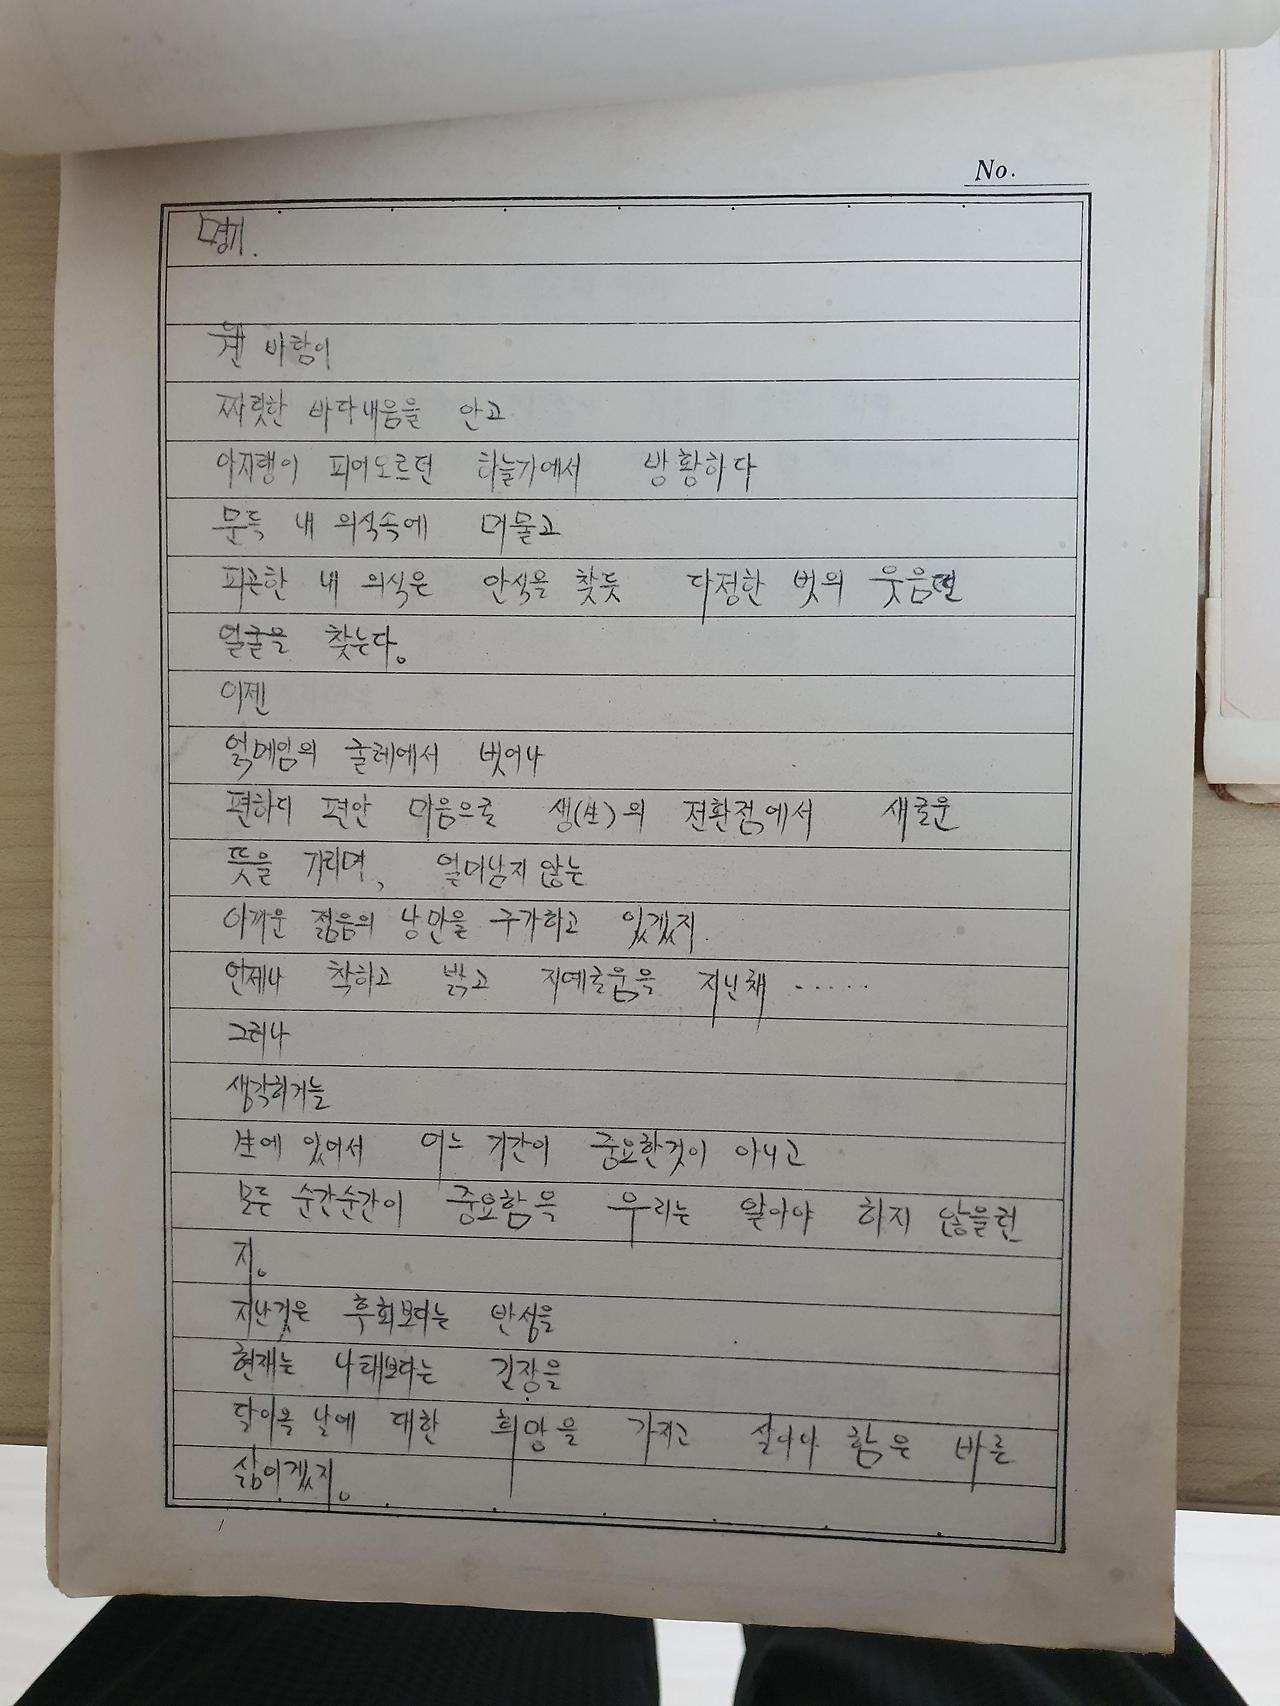 No.
명기.
웬 바람이
짜릿한 바다내음을 안고
아지랭이 피어오르던 하늘가에서 방황하다
문득 내 의식속에 머물고
피곤한 내 의식은 안식을 찾듯 다정한 벗의 웃음띤
얼굴을 찾는다.
이젠
얽메임의 굴레에서 벗어나
편하디 편안 마음으로 생(生)의 전환점에서 새로운
뜻을 기리며, 얼마남지 않는
아까운 젊음의 낭만을 구가하고 있겠지.
언제나 착하고 밝고 지혜로움을 지닌채 .....
그러나
생각하기는
生에 있어서 어느 기간이 중요한것이 아니고
모든 순간순간이 중요함을 우리는 알아야 하지 않을런
지.
지난것은 후회보다는 반성을
현재는 나태보다는 긴장을
닥아올 날에 대한 희망을 가지고 살아야 함은 바른
삶이겠지.